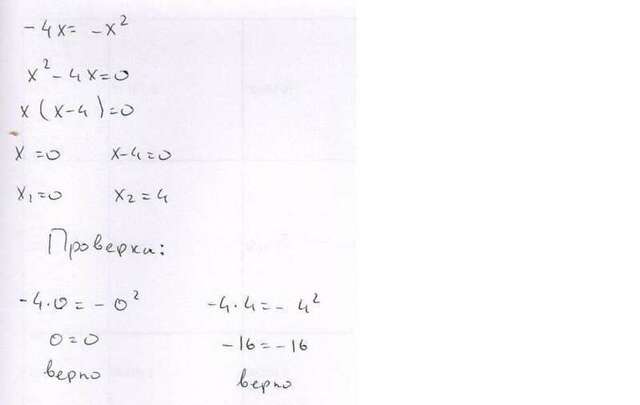 -4x = -x²
x² - 4x = 0
x (x-4) = 0
x = 0 x-4=0
x₁=0 x₂=4
Проверки:
-4·0 = -0² -4·4 = -4²
0=0 -16=-16
верно верно